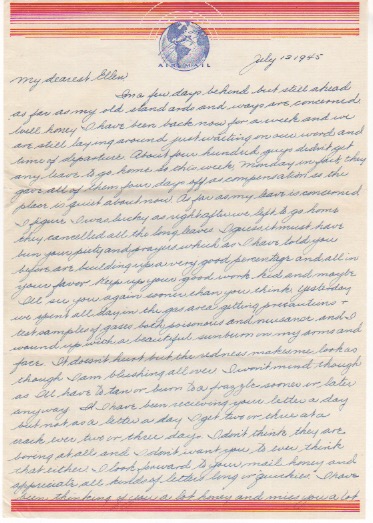 AIR MAIL
July 12 1945
My dearest Ellen
I'm a few days behind but still ahead
as far as my old standards and ways are concerned
well honey I have been back now for a week and we
are still laying around just waiting on our word and
time of departure. About four hundred guys didn't get
any leave to go home so this week Monday in fact they
gave all of them four days off as compensation so the
place is quiet about now. As far as my leave is concerned
I figure I was lucky as right after we left to go home
they cancelled all the long leaves. I guess it must have
been your and prayers which as I have told you
before are building up a very good percentage and all in
your favor. Keep up your good work kid and maybe
I'll see you again sooner than you think. Yesterday
we spent all day in the gas area getting precautions +
test samples of gases both poisonous and nuisance and I
wound up with a beautiful sunburn on my arms and
face. It doesn't hurt but the redness makes me look as
though I am blushing all over. I won't mind though
as I'll have to tan or burn to a frazzle sooner or later
anyway. I have been receiving your letter a day
but not as a letter a day I get two or three at a
crack ever two or three days. I don't think they are
boring at all and I don't want you to ever think
that either. I look forward to your mail honey and
appreciate all kinds of letters long or quickies. I have
been thinking of you a lot honey and miss you a lot